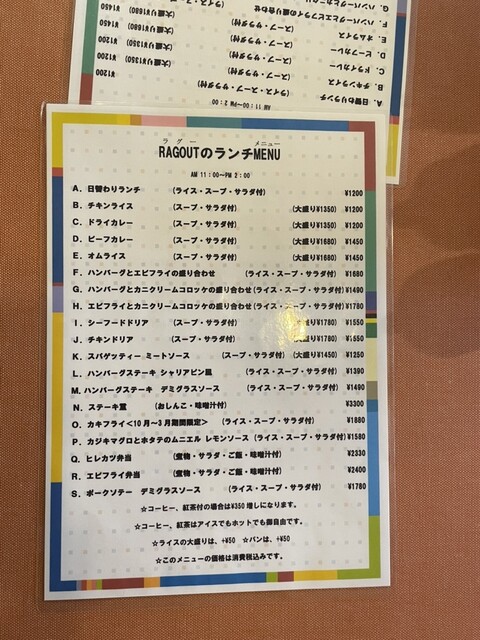 ¥1200
¥1200
(大盛り¥1350) ¥1200
(大盛り¥1680) ¥1450
(大盛り¥1680) ¥1450
A. 日替わりランチ (ライス・スープ・サラダ付)
B. チキンライス (スープ・サラダ付)
C. ドライカレー (スープ・サラダ付)
D. ビーフカレー
E. オムライス
F. ハンバーグとエビフライの盛り合わせ
AM 11:00〜PM 2:00
ラグー メニュー
RAGOUTのランチMENU
AM 11:00〜PM 2:00
A. 日替わりランチ (ライス・スープ・サラダ付) ¥1200
B. チキンライス (スープ・サラダ付) (大盛り¥1350) ¥1200
C. ドライカレー (スープ・サラダ付) (大盛り¥1350) ¥1200
D. ビーフカレー (スープ・サラダ付) (大盛り¥1680) ¥1450
E. オムライス (スープ・サラダ付) (大盛り¥1680) ¥1450
F. ハンバーグとエビフライの盛り合わせ (ライス・スープ・サラダ付) ¥1680
G. ハンバーグとカニクリームコロッケの盛り合わせ(ライス・スープ・サラダ付) ¥1490
H. エビフライとカニクリームコロッケの盛り合わせ(ライス・スープ・サラダ付) ¥1780
I. シーフードドリア (スープ・サラダ付) (大盛り¥1780) ¥1550
J. チキンドリア (スープ・サラダ付) (大盛り¥1780) ¥1550
K. スパゲッティー ミートソース (スープ・サラダ付) (大盛り¥1450) ¥1250
L. ハンバーグステーキ シャリアピン風 (ライス・スープ・サラダ付) ¥1390
M. ハンバーグステーキ デミグラスソース (ライス・スープ・サラダ付) ¥1490
N. ステーキ重 (おしんこ・味噌汁付) ¥3300
O. カキフライ<10月〜3月期間限定> (ライス・スープ・サラダ付) ¥1880
P. カジキマグロとホタテのムニエル レモンソース (ライス・スープ・サラダ付) ¥1580
Q. ヒレカツ弁当 (煮物・サラダ・ご飯・味噌汁付) ¥2330
R. エビフライ弁当 (煮物・サラダ・ご飯・味噌汁付) ¥2400
S. ポークソテー デミグラスソース (ライス・スープ・サラダ付) ¥1780
☆コーヒー、紅茶付の場合は¥350増しになります。
☆コーヒー、紅茶はアイスでもホットでも御自由です。
☆ライスの大盛りは、+¥50 ☆パンは、+¥50
☆このメニューの価格は消費税込みです。